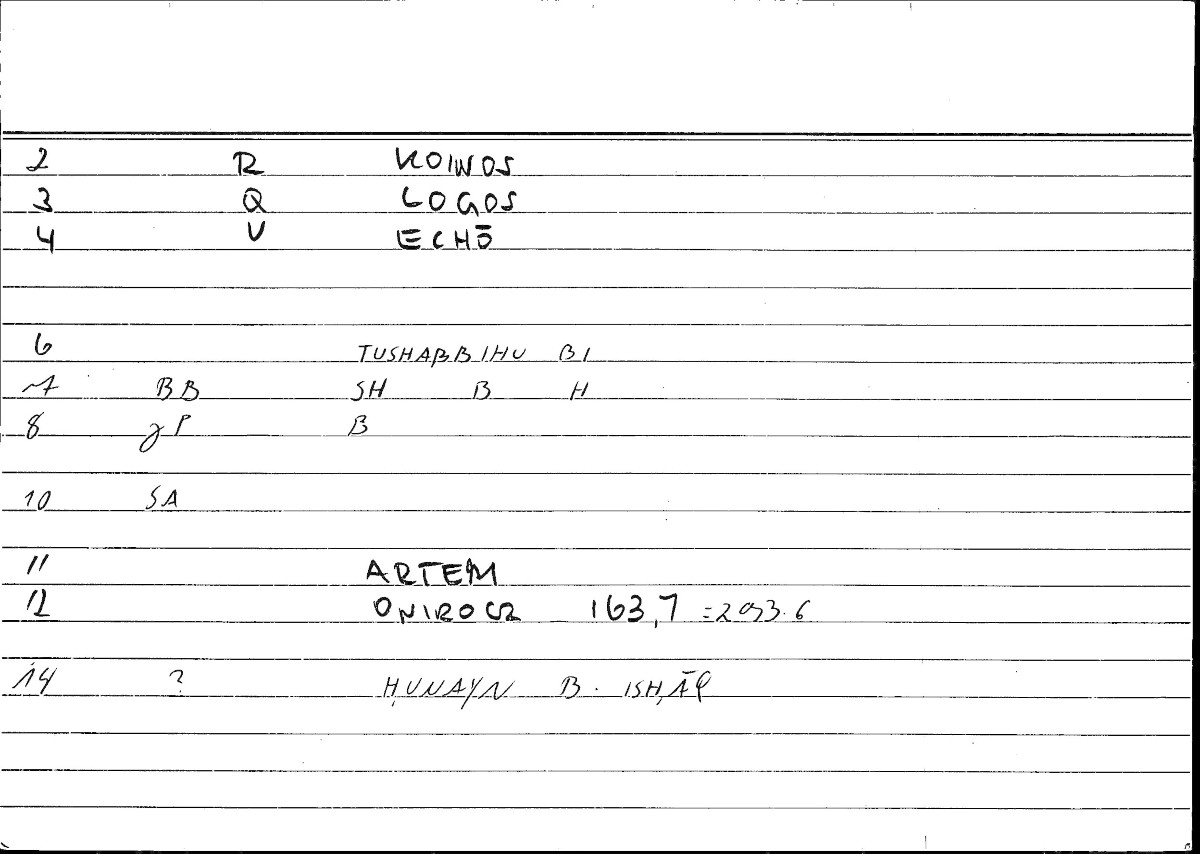 2 R KOINOS
3 Q LOGOS
4 V ECHŌ
6 TUSHABBIHU BI
7 BB SH B H
8 JP B
10 SA
11 ARTEM
12 ONIROCR 163,7 = 293.6
14 ? ḤUNAYN B. ISḤĀQ